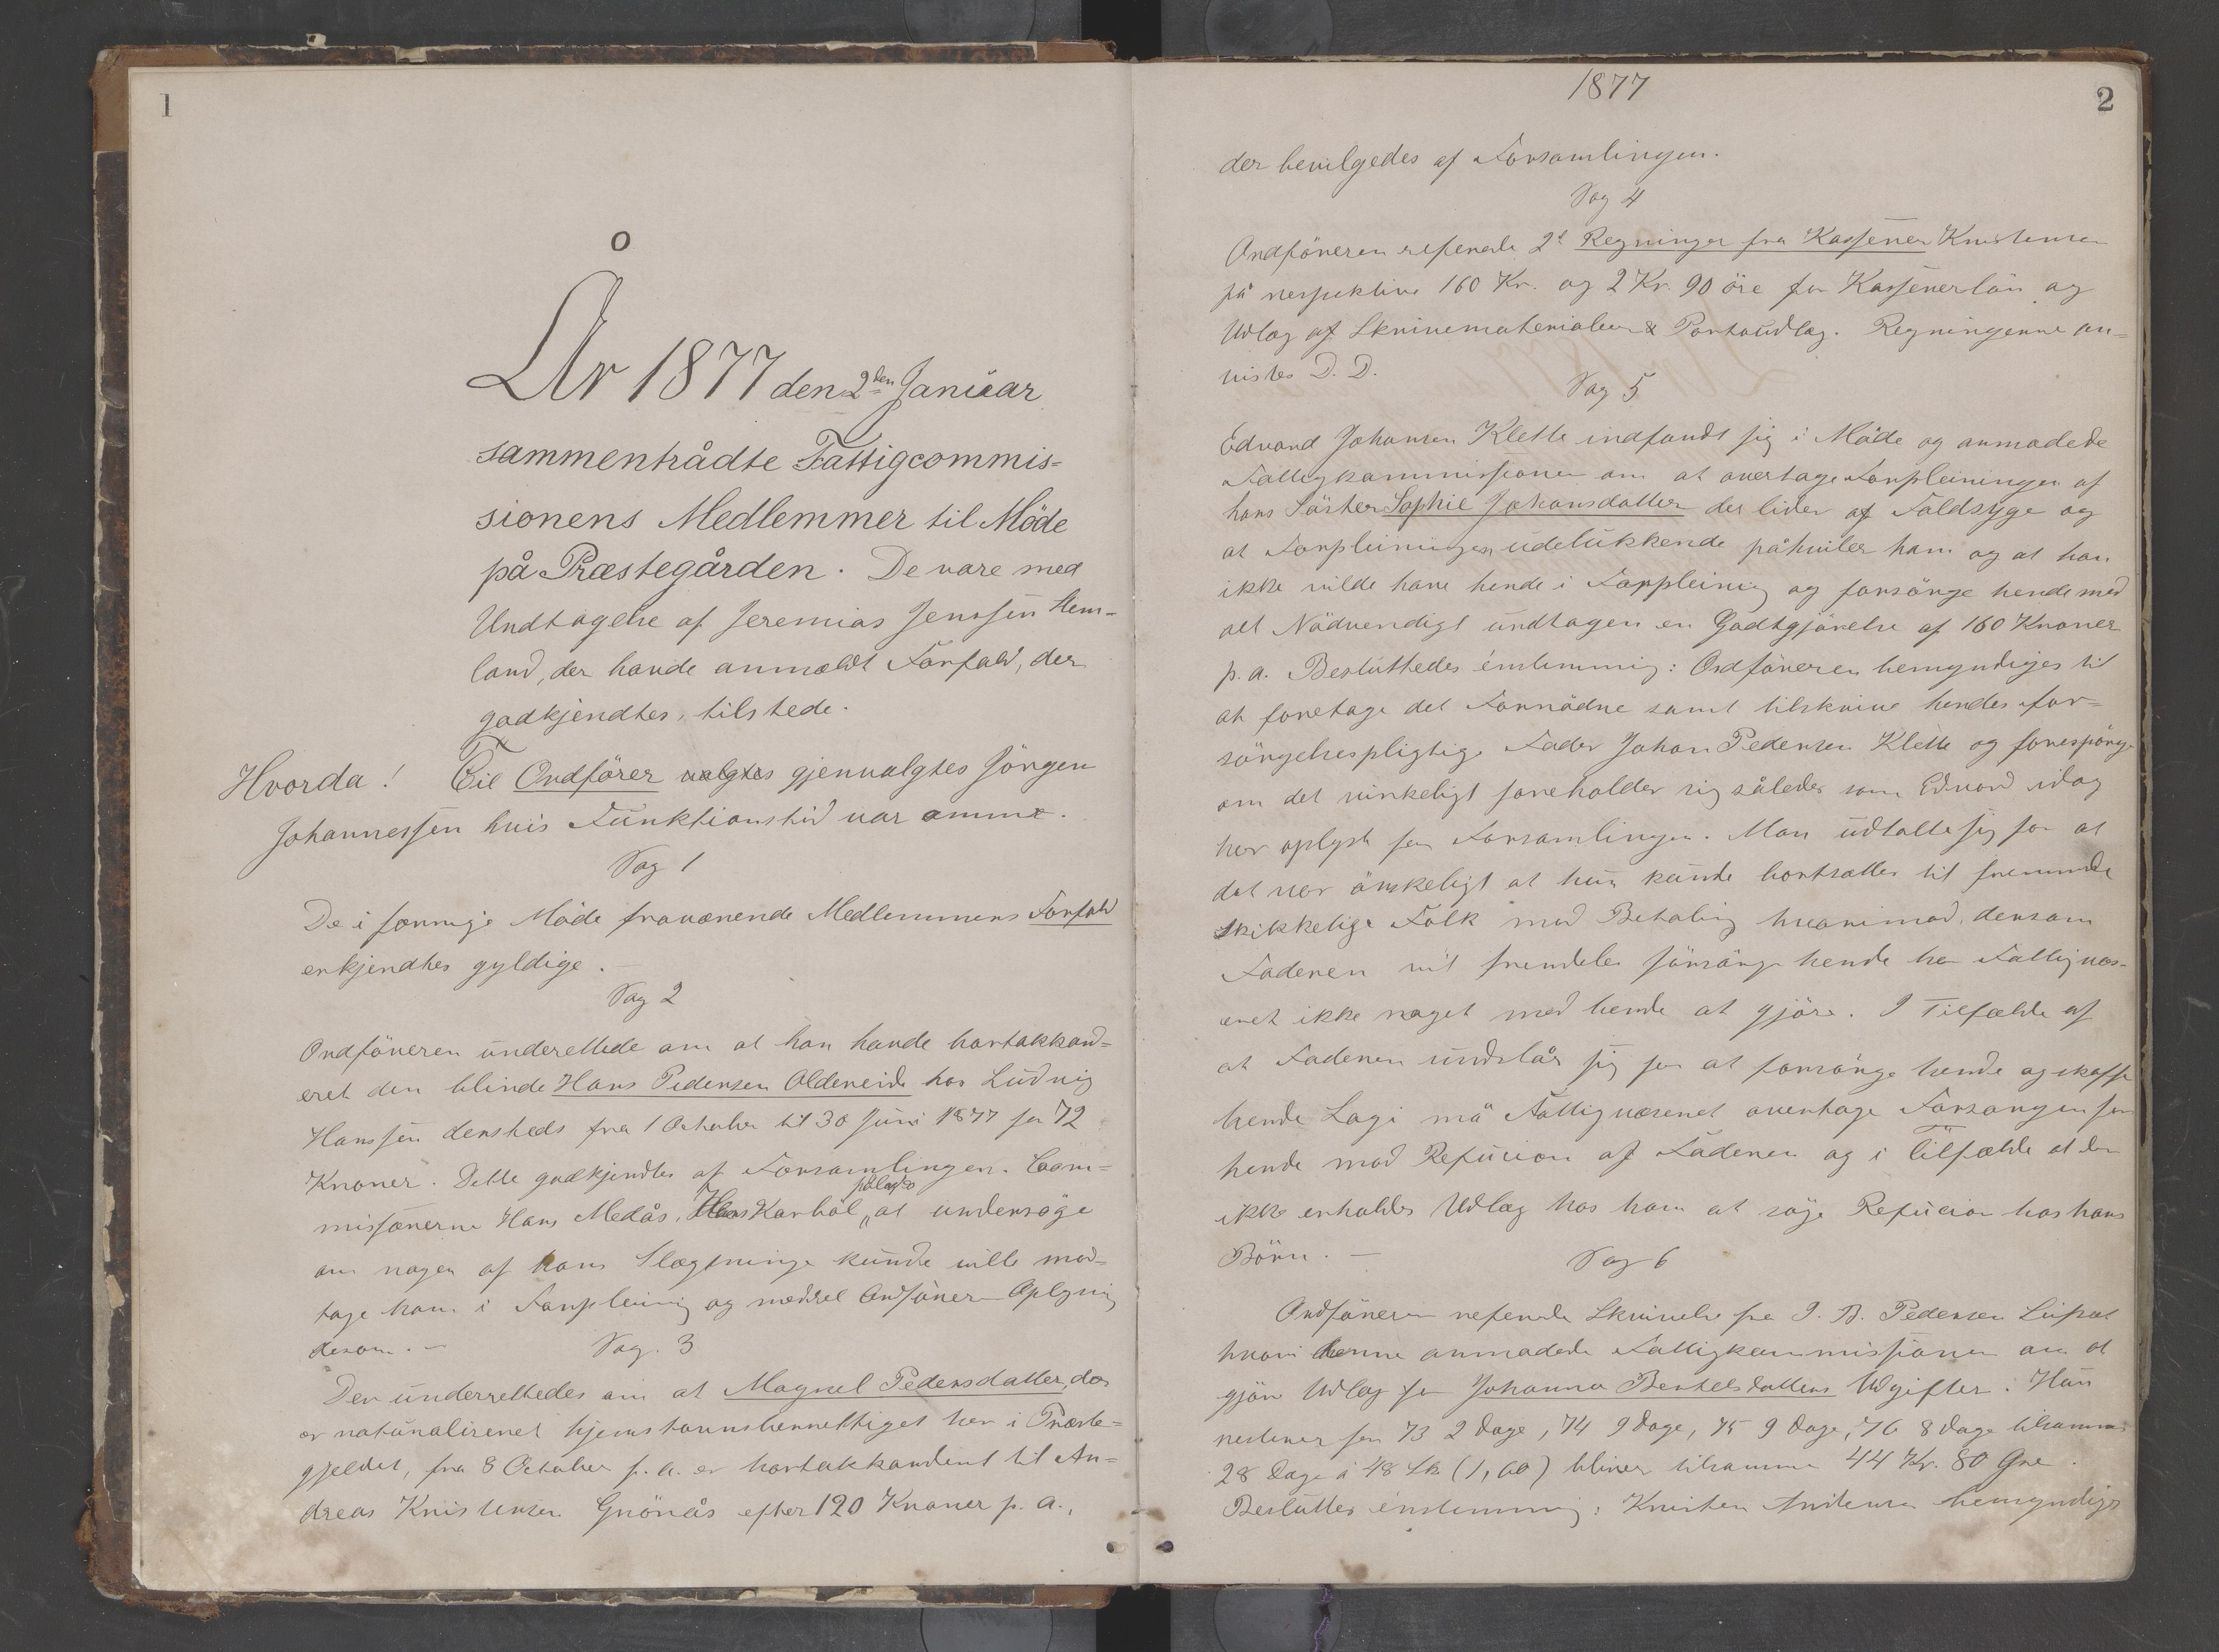 1
År 1877 den 2den Januar
sammentrådte Fattigcommis=
sionens Medlemmer til Möde
på Præstegården. De vare med
Undtagelse af Jeremias Jenssen Hem-
land, der havde anmeldt Forfald, der
godkjendtes, tilstede.
Hvorda! Til Ordförer valgtes gjenvalgtes Jörgen
Johannessen hvis Funktionstid var omme.
Sag 1
De i forrige Möde fraværende Medlemmers Forfald
erkjendtes gyldige.
Sag 2
Ordföreren underettede om at han havde bortakkord=
eret den blinde Hans Pedersen Oldereide hos Ludvig
Hanssen dersteds fra 1 October til 30 Juni 1877 for 72
Kroner. Dette godkjendtes af Forsamlingen. Com=
missærerne Hans Medås, Karböl pålagdes at undersöge
om nogen af hans Slægtninge kunde ville mod=
tage ham i Forpleining og meddel Ordföreren Oplysning
desom. –
Sag. 3
Der underrettedes om at Magnel Pedersdatter, der
er naturaliseret hjemstavnsberettiget her i Præste=
gjeldet, fra 8 October f. a. er bortakkorderet til An=
dreas Kristensen Grönås efter 120 Kroner p. a.,
1877
2
der bevilgedes af Forsamlingen.
Sag 4
Ordföreren refererede 2de Regninger fra Kasserer Kristensen
på respektive 160 Kr. og 2 Kr. 90 öre for Kassererlön og
Udlæg af Skrivematerialier & Portoudlæg. Regningerne an=
vistes D. D.
Sag 5
Edvard Johansen Klette indfandt sig i Möde og anmodede
Fattigkommissionen om at overtage Forpleiningen af
hans Söster Sophie Johansdatter der lider af Faldsyge og
at Forpleiningen udelukkende påhviler ham og at han
ikke vilde have hende i Forpleining og forsörge hende med
alt Nödvendigt undtagen en Godtgjörelse af 160 Kroner
p. a. Besluttedes énstemmig: Ordföreren bemyndiges til
at foretage det Fornödne samt tilskrive hendes for=
sörgelsespligtige Fader Johan Pedersen Klette og forespörge
om det virkeligt foreholder sig således som Edvard idag
har oplyst for Forsamlingen. Man udtalte sig for at
det var önskeligt at hun kunde bortsættes til fremmede
skikkelige Folk mod Betaling hvorimod, dersom
Faderen vil fremdeles forsörge hende har Fattigvæs-
enet ikke noget med hende at gjöre. I Tilfælde af
at Faderen undslår sig for at forsörge hende og skaffe
hende Logi må Fattigvæsenet overtage Forsorgen for
hende mod Refusion af Faderen og i Tilfælde at der
ikke erholdes Udlæg hos ham at söge Refusion hos hans
Börn. –
Sag 6
Ordföreren refererede Skrivelse fra J. B. Pedersen
hvori denne anmodede Fattigkommissionen om at
gjöre Udlæg for Johanna Bertelsdatters Udgifter. Hun
resterer for 73 2 dage, 74 9 dage, 75 9 dage, 76 8 dage tilsammen
28 dage á 48 Sk (1,60) bliver tilsammen 44 Kr. 80 Öre.
Besluttes énstemmig: Kristen Andersen bemyndiges